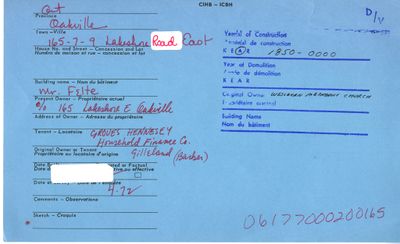 CIHB – ICBH
Ont
Province
Oakville
Town – Ville
165-7-9 Lakeshore Road East
House No. and Street – Concession and Lot
Numéro de maison et rue – concession et lot
Building name – Nom du bâtiment
Mr.
Present Owner – Propriétaire actuel
c/o 165 Lakeshore E Oakville
Address of Owner – Adresse du propriétaire
Tenant – Locataire GROVES HENNESEY
Household Finance Co.
Original Owner or Tenant
Propriétaire ou locataire d'origine
Gilleland (Barber)
4-72
Comments – Observations
Sketch – Croquis
D/V
Year(s) of Construction
de construction
K E A R 1850-0000
Year of Demolition
de démolition
K E A R
Original Owner WESLEYAN METHODIST CHURCH
Propriétaire
Building Name
Nom du bâtiment
06177000200165